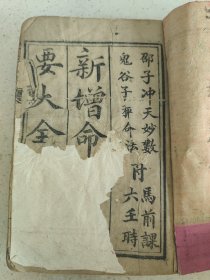 邵子冲天妙數
鬼谷子算命法
附馬前課
六壬時
新增命
要大全